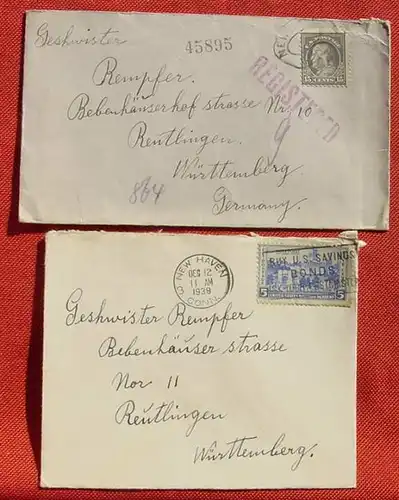 Geshwister
45895
NEW
15 CENTS 15
REGISTERED
Rempfer.
Bebenhäuserhof strasse Nr. 10
Reutlingen.
Württemberg.
864
Germany.
NEW HAVEN
CONN.
DEC 12
11 AM
1938
BUY U.S. SAVINGS
BONDS
5 5
Geshwister Rempfer
Bebenhäuser strasse
Nor 11
Reutlingen
Württemberg.